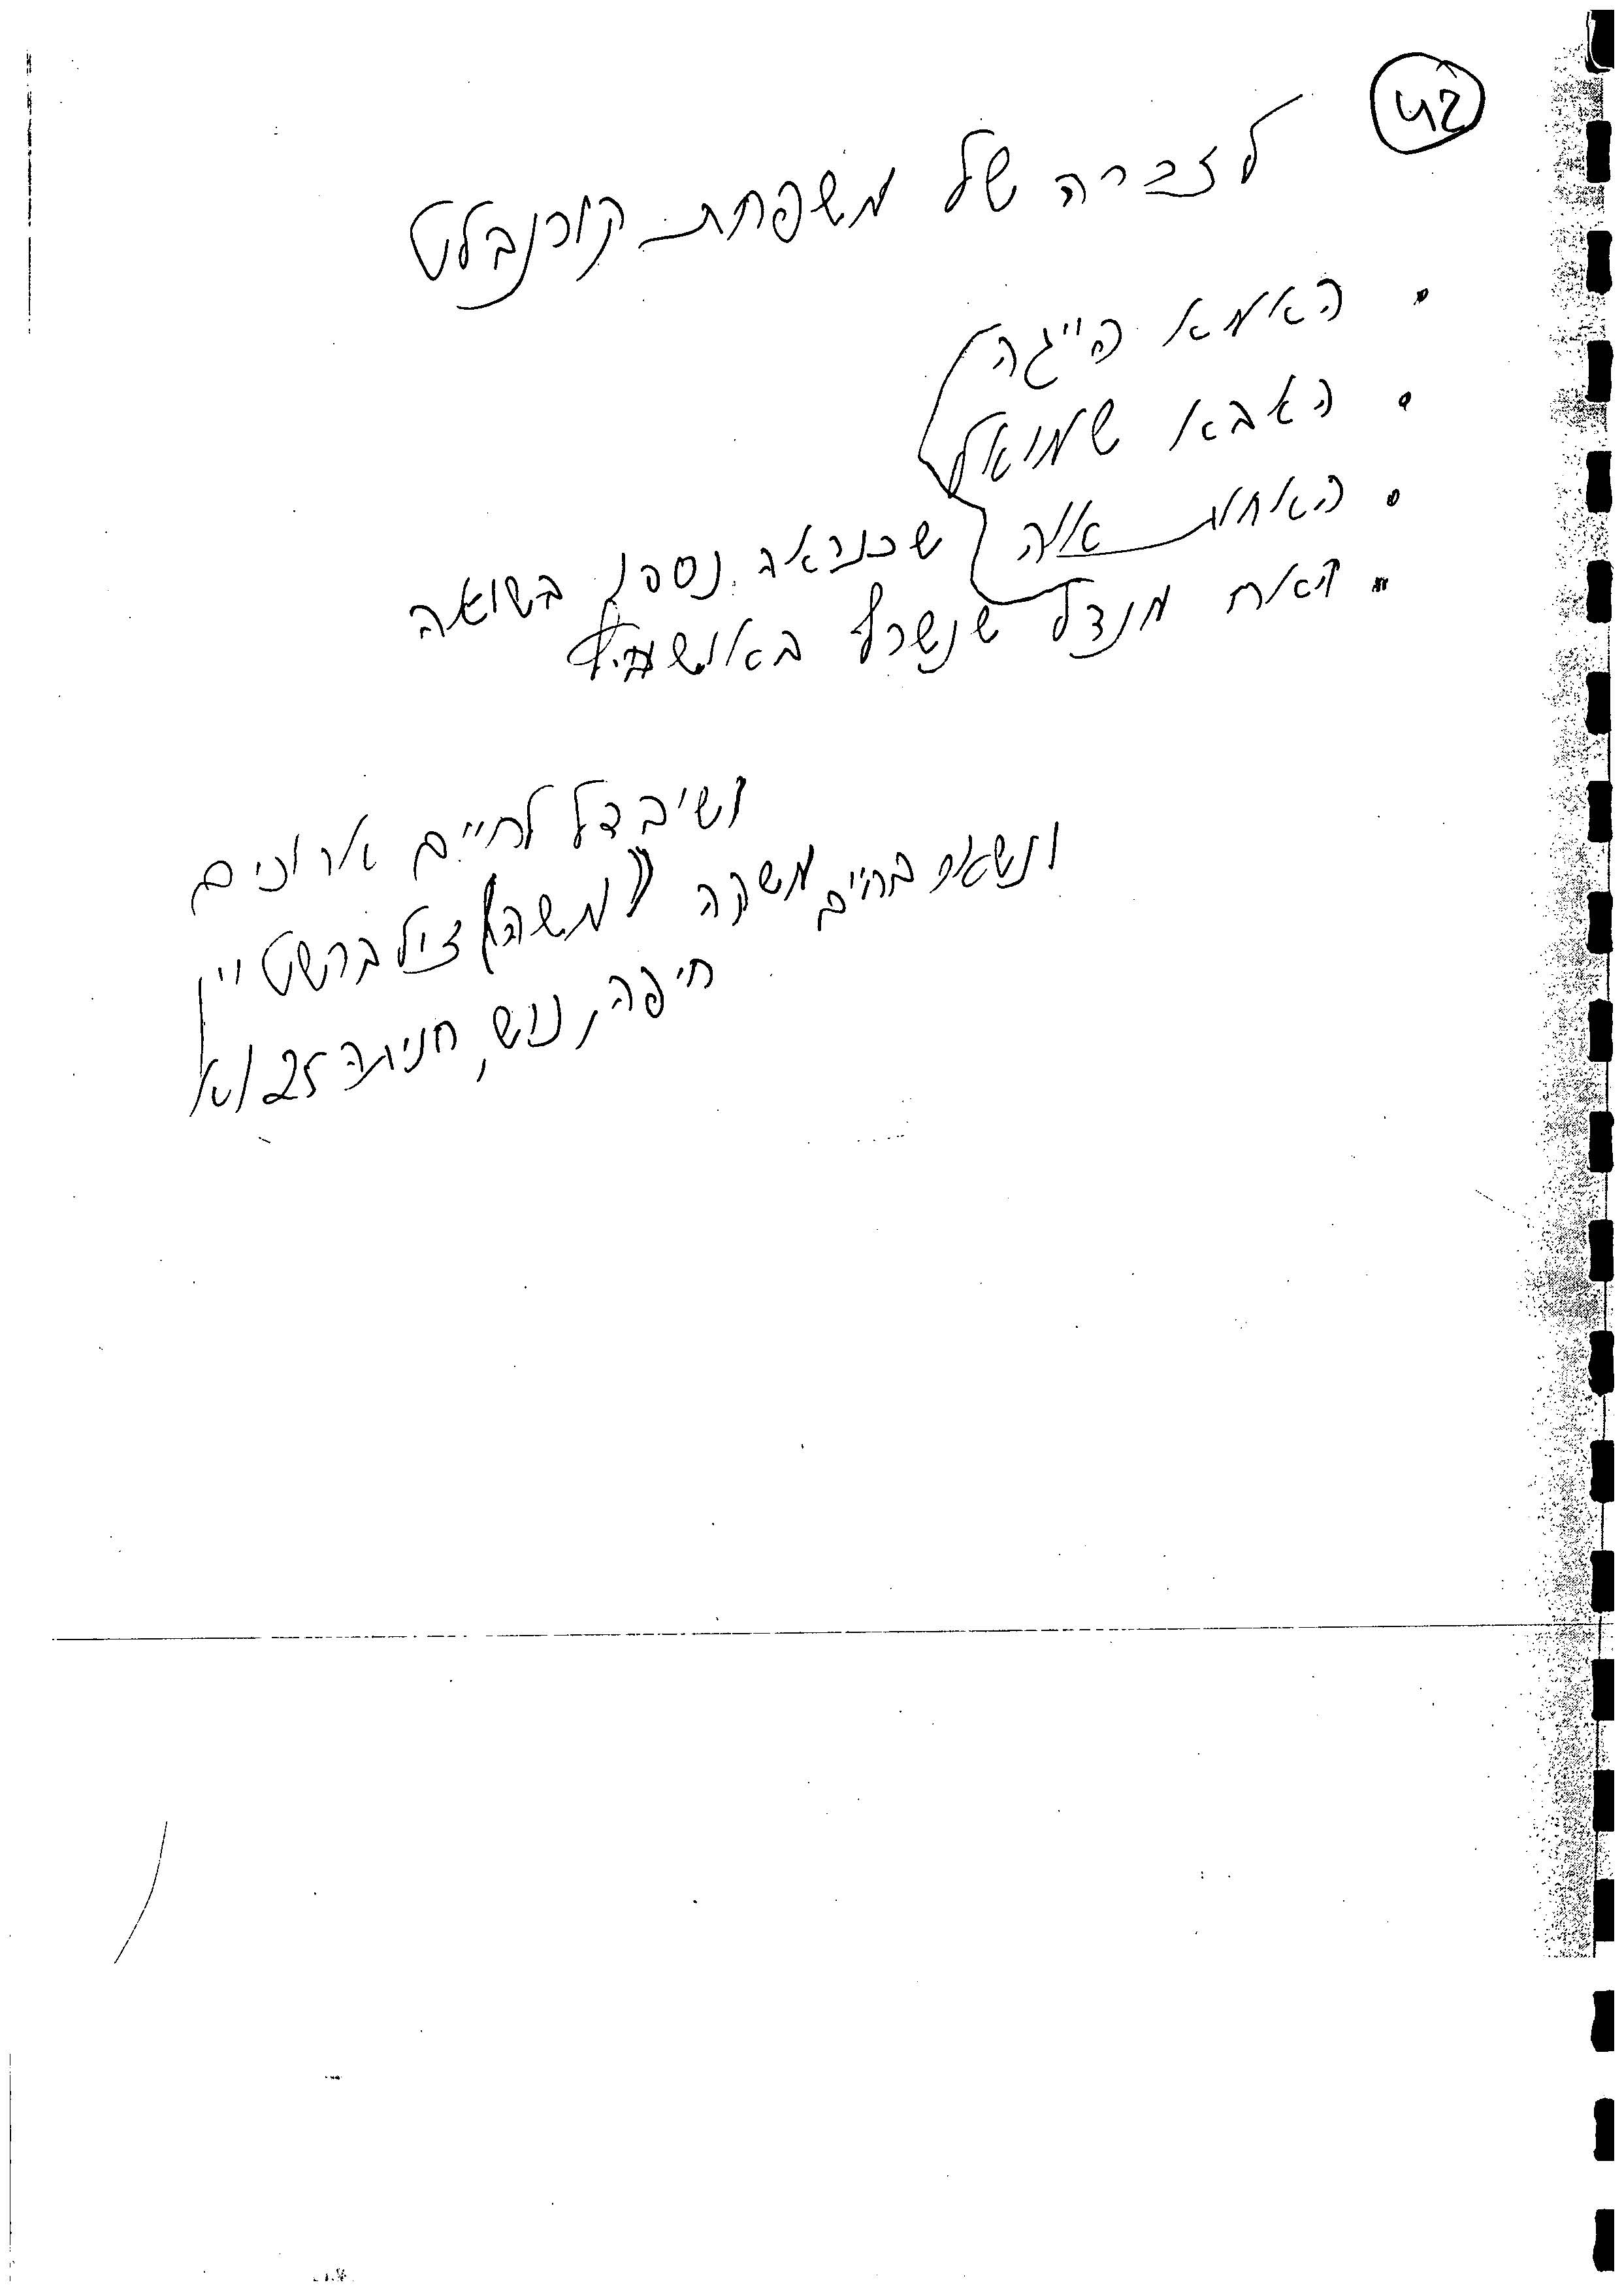 42
לזכרה של משפחת קורנבלט
• האמא פייגה
• האבא שמואל
• האחות אלה } שכנראה נספו בשואה
• האח מנדל שנשרף באושעוויץ
ושיבדל לחיים ארוכים
ונשאר בחיים משקה (משה) זילברשטיין
חיפה, נוש, חניתה 25/א